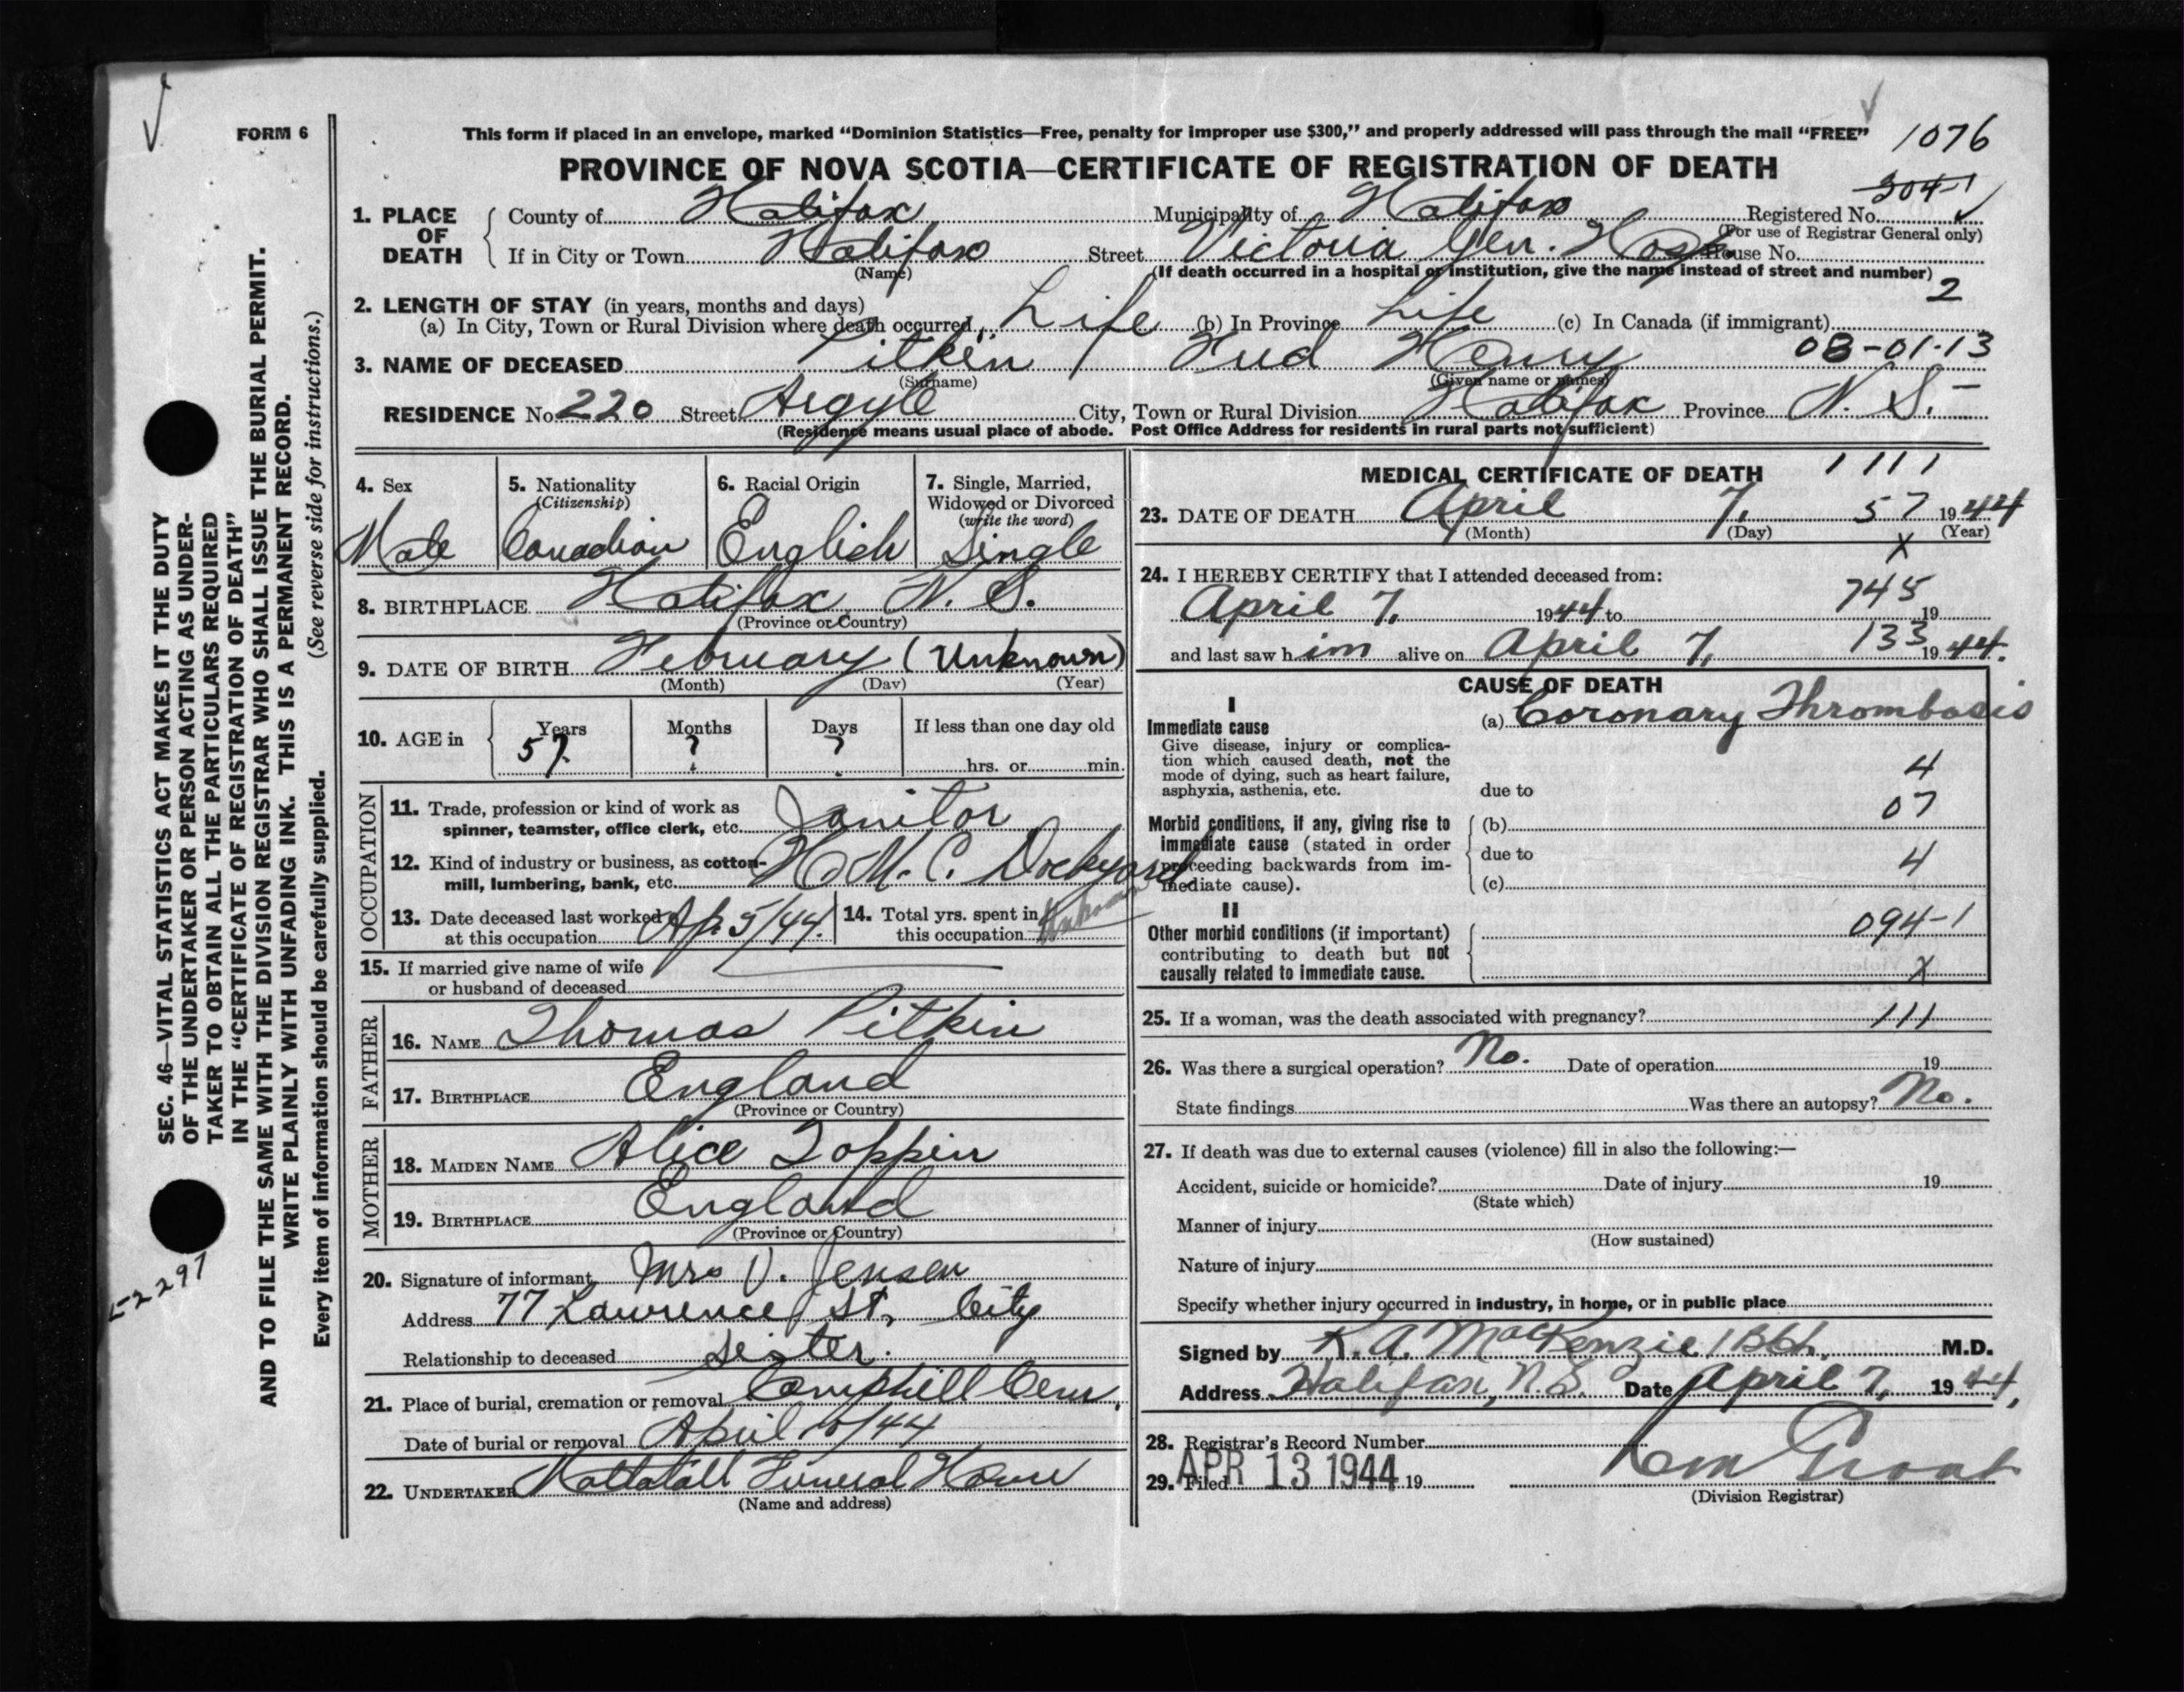 FORM 6
This form if placed in an envelope, marked “Dominion Statistics—Free, penalty for improper use $300,” and properly addressed will pass through the mail “FREE”
1076
PROVINCE OF NOVA SCOTIA—CERTIFICATE OF REGISTRATION OF DEATH
304-1
1. PLACE OF DEATH
County of Halifax Municipality of Halifax Registered No.
(For use of Registrar General only)
If in City or Town Halifax Street Victoria Gen. Hosp. House No.
(Name) (If death occurred in a hospital or institution, give the name instead of street and number)
2
2. LENGTH OF STAY (in years, months and days)
(a) In City, Town or Rural Division where death occurred Life (b) In Province Life (c) In Canada (if immigrant)
08-01-13
3. NAME OF DECEASED Pitkin Fred Henry
(Surname) (Given name or names)
RESIDENCE No. 220 Street Argyle City, Town or Rural Division Halifax Province N. S. –
(Residence means usual place of abode. Post Office Address for residents in rural parts not sufficient)
4. Sex
Male
5. Nationality
(Citizenship)
Canadian
6. Racial Origin
English
7. Single, Married,
Widowed or Divorced
(write the word)
Single
8. BIRTHPLACE Halifax, N. S.
(Province or Country)
9. DATE OF BIRTH February (Unknown)
(Month) (Day) (Year)
10. AGE in
Years Months Days If less than one day old
57. ? ? hrs. or min.
OCCUPATION
11. Trade, profession or kind of work as
spinner, teamster, office clerk, etc. Janitor
12. Kind of industry or business, as cotton-
mill, lumbering, bank, etc. H. M. C. Dockyard
13. Date deceased last worked
at this occupation Ap. 5/44.
14. Total yrs. spent in
this occupation
15. If married give name of wife
or husband of deceased
FATHER
16. NAME Thomas Pitkin
17. BIRTHPLACE England
(Province or Country)
MOTHER
18. MAIDEN NAME Alice Toppin
19. BIRTHPLACE England
(Province or Country)
20. Signature of informant Mrs V. Jensen
Address 77 Lawrence St, City
Relationship to deceased Sister.
21. Place of burial, cremation or removal Camphill Cem,
Date of burial or removal April /44
22. UNDERTAKER Mattatall Funeral Home
(Name and address)
MEDICAL CERTIFICATE OF DEATH 1111
23. DATE OF DEATH April 7, 57 1944
(Month) (Day) (Year)
X
24. I HEREBY CERTIFY that I attended deceased from:
April 7, 1944 to 745 19
and last saw him alive on April 7, 133 1944.
CAUSE OF DEATH
I
Immediate cause
Give disease, injury or complica-
tion which caused death, not the
mode of dying, such as heart failure,
asphyxia, asthenia, etc.
(a) Coronary Thrombosis
4
due to
07
Morbid conditions, if any, giving rise to
immediate cause (stated in order
proceeding backwards from im-
mediate cause).
(b)
due to
4
(c)
II
Other morbid conditions (if important)
contributing to death but not
causally related to immediate cause.
094-1
X
25. If a woman, was the death associated with pregnancy? 111
26. Was there a surgical operation? No. Date of operation 19
State findings Was there an autopsy? No.
27. If death was due to external causes (violence) fill in also the following:—
Accident, suicide or homicide? Date of injury 19
(State which)
Manner of injury
(How sustained)
Nature of injury
Specify whether injury occurred in industry, in home, or in public place
Signed by K. A. MacKenzie M.D.
Address Halifax, N.S. Date April 7, 1944,
28. Registrar's Record Number
29. Filed APR 13 1944 19
(Division Registrar)
SEC. 46—VITAL STATISTICS ACT MAKES IT THE DUTY
OF THE UNDERTAKER OR PERSON ACTING AS UNDER-
TAKER TO OBTAIN ALL THE PARTICULARS REQUIRED
IN THE “CERTIFICATE OF REGISTRATION OF DEATH”
AND TO FILE THE SAME WITH THE DIVISION REGISTRAR WHO SHALL ISSUE THE BURIAL PERMIT.
WRITE PLAINLY WITH UNFADING INK. THIS IS A PERMANENT RECORD.
Every item of information should be carefully supplied. (See reverse side for instructions.)